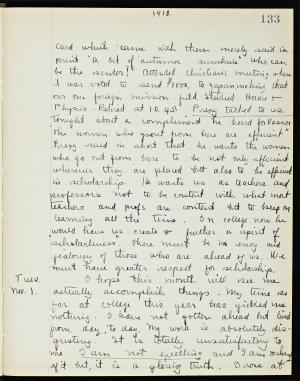 1910.
133
card which came with them merely said in
print "a bit of autumn sunshine" who can
be the sender! Attended Christians meeting where
it was voted to send $100. to
our one foreign mission field. Studied Horace +
Physics - Retired at 10.45. Prexy talked to us
tonight about a compliment he heard for Vassar
"The women who go out from here are efficient"
Prexy said in short that he wants the women
who go out from here to be not only efficient
wherever they are placed but also to be efficient
in scholarship. He wants us as teachers and
professors not to be content with what most
teachers and profs. are content but to keep on
learning all the time. In college now he
would have us create & further a spirit of
"scholarliness". There must be no envy and
jealousy of those who are ahead of us. We
must have greater respect for scholarship.
Tues. I hope this month will see me
Nov. 1. actually accomplish things. My time so
far at college this year has yielded me
nothing. I have not gotten ahead but lived
from day to day. My work is absolutely dis-
gusting. It is totally unsatisfactory to
me. I am not excelling and I am ashamed
of it but, it is a glaring truth. I rose at